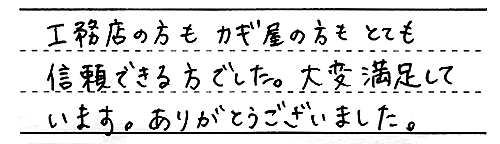 工務店の方も カギ屋の方も とても
信頼できる方でした。大変満足して
います。ありがとうございました。